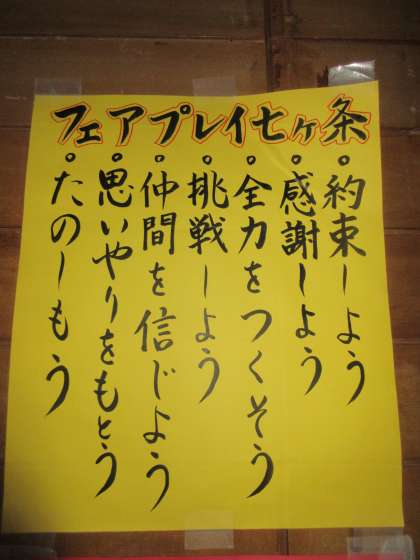 フェアプレイ七ヶ条
。約束しよう
。感謝しよう
。全力をつくそう
。挑戦しよう
。仲間を信じよう
。思いやりをもとう
。たのしもう